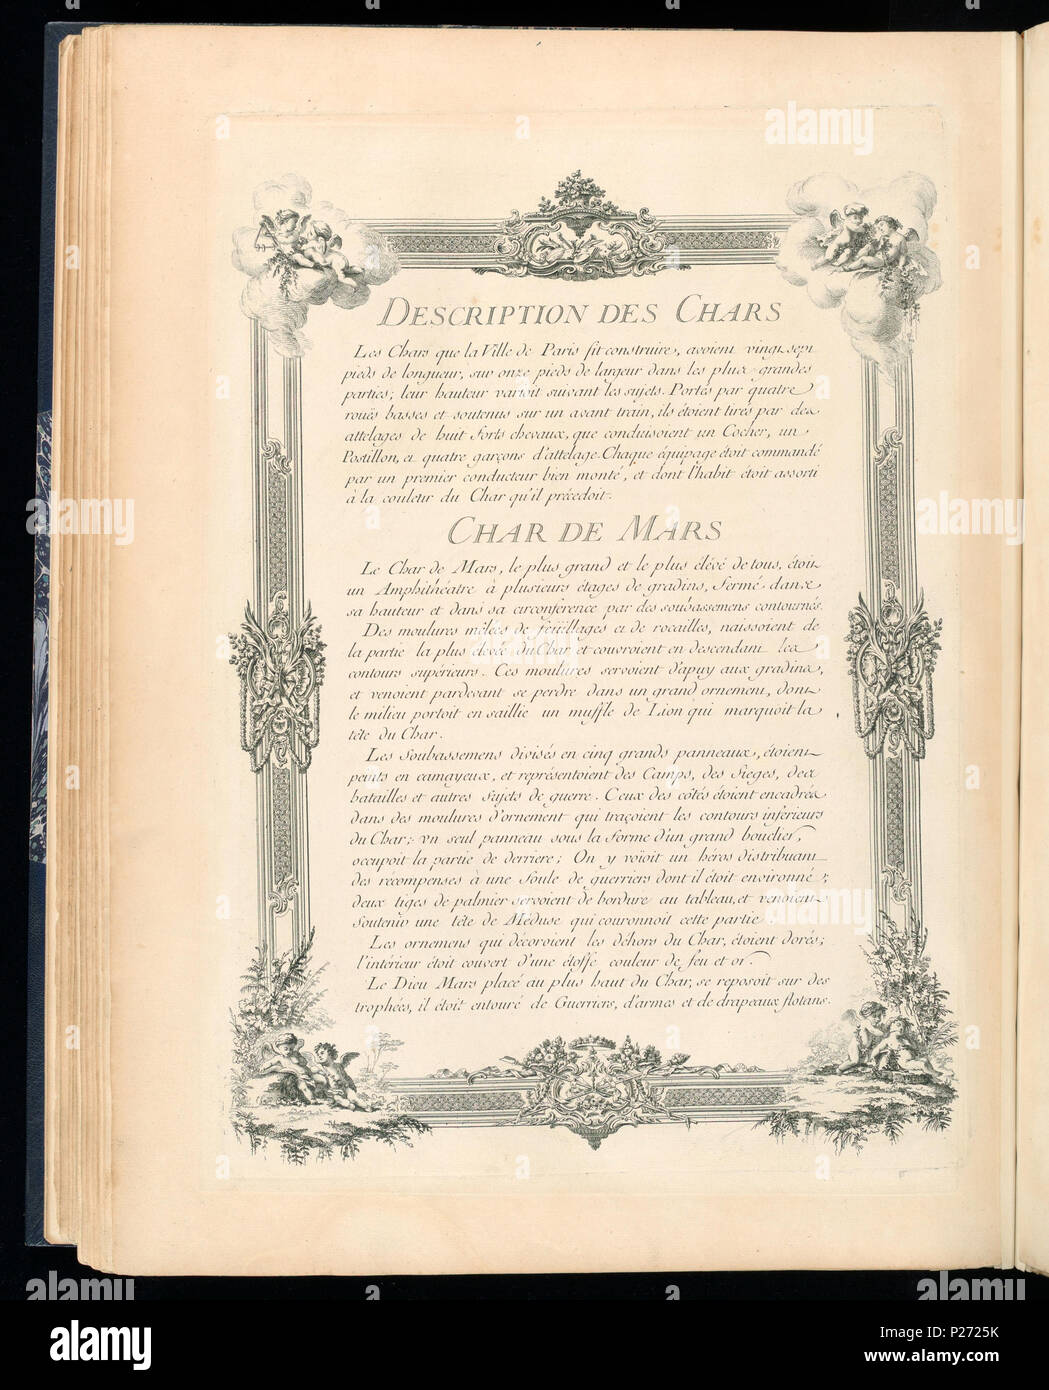 DESCRIPTION DES CHARS
Les Chars que la Ville de Paris fit construire, avoient vingt sept
pieds de longueur, sur onze pieds de largeur dans les plus grandes
parties; leur hauteur varioit suivant les sujets. Portés par quatre
rouës basses et soutenus sur un avant train, ils étoient tirés par des
attelages de huit forts chevaux, que conduisoient un Cocher, un
Postillon, et quatre garçons d'attelage. Chaque équipage étoit commandé
par un premier conducteur bien monté, et dont l'habit étoit assorti
à la couleur du Char qu'il précedoit.
CHAR DE MARS
Le Char de Mars, le plus grand et le plus élévé de tous, étoit
un Amphithéatre à plusieurs étages de gradins, fermé dans
sa hauteur et dans sa circonférence par des soubassemens contournés.
Des moulures mêlées de feüillages et de rocailles, naissoient de
la partie la plus élevée du Char, et couvroient en descendant les
contours supérieurs. Ces moulures servoient d'apuy aux gradins,
et venoient pardevant se perdre dans un grand ornement, dont
le milieu portoit en saillie un muffle de Lion qui marquoit la
tête du Char.
Les Soubassemens divisés en cinq grands panneaux, étoient
peints en camayeux, et représentoient des Camps, des Sieges, des
batailles et autres sujets de guerre. Ceux des côtés étoient encadrés
dans des moulures d'ornement qui traçoient les contours inférieurs
du Char; un seul panneau sous la forme d'un grand bouclier,
occupoit la partie de derriere; On y voioit un héros distribuant
des récompenses à une foule de guerriers dont il étoit environné;
deux tiges de palmier servoient de bordure au tableau, et venoient
soutenir une tête de Méduse qui couronnoit cette partie.
Les ornemens qui décoroient les déhors du Char, étoient dorés;
l'intérieur étoit couvert d'une étoffe couleur de feu et or.
Le Dieu Mars placé au plus haut du Char, se reposoit sur des
trophées, il étoit entouré de Guerriers, d'armes et de drapeaux flotans.
alamy
alamy
alamy
alamy
Image ID: P2725K
www.alamy.com